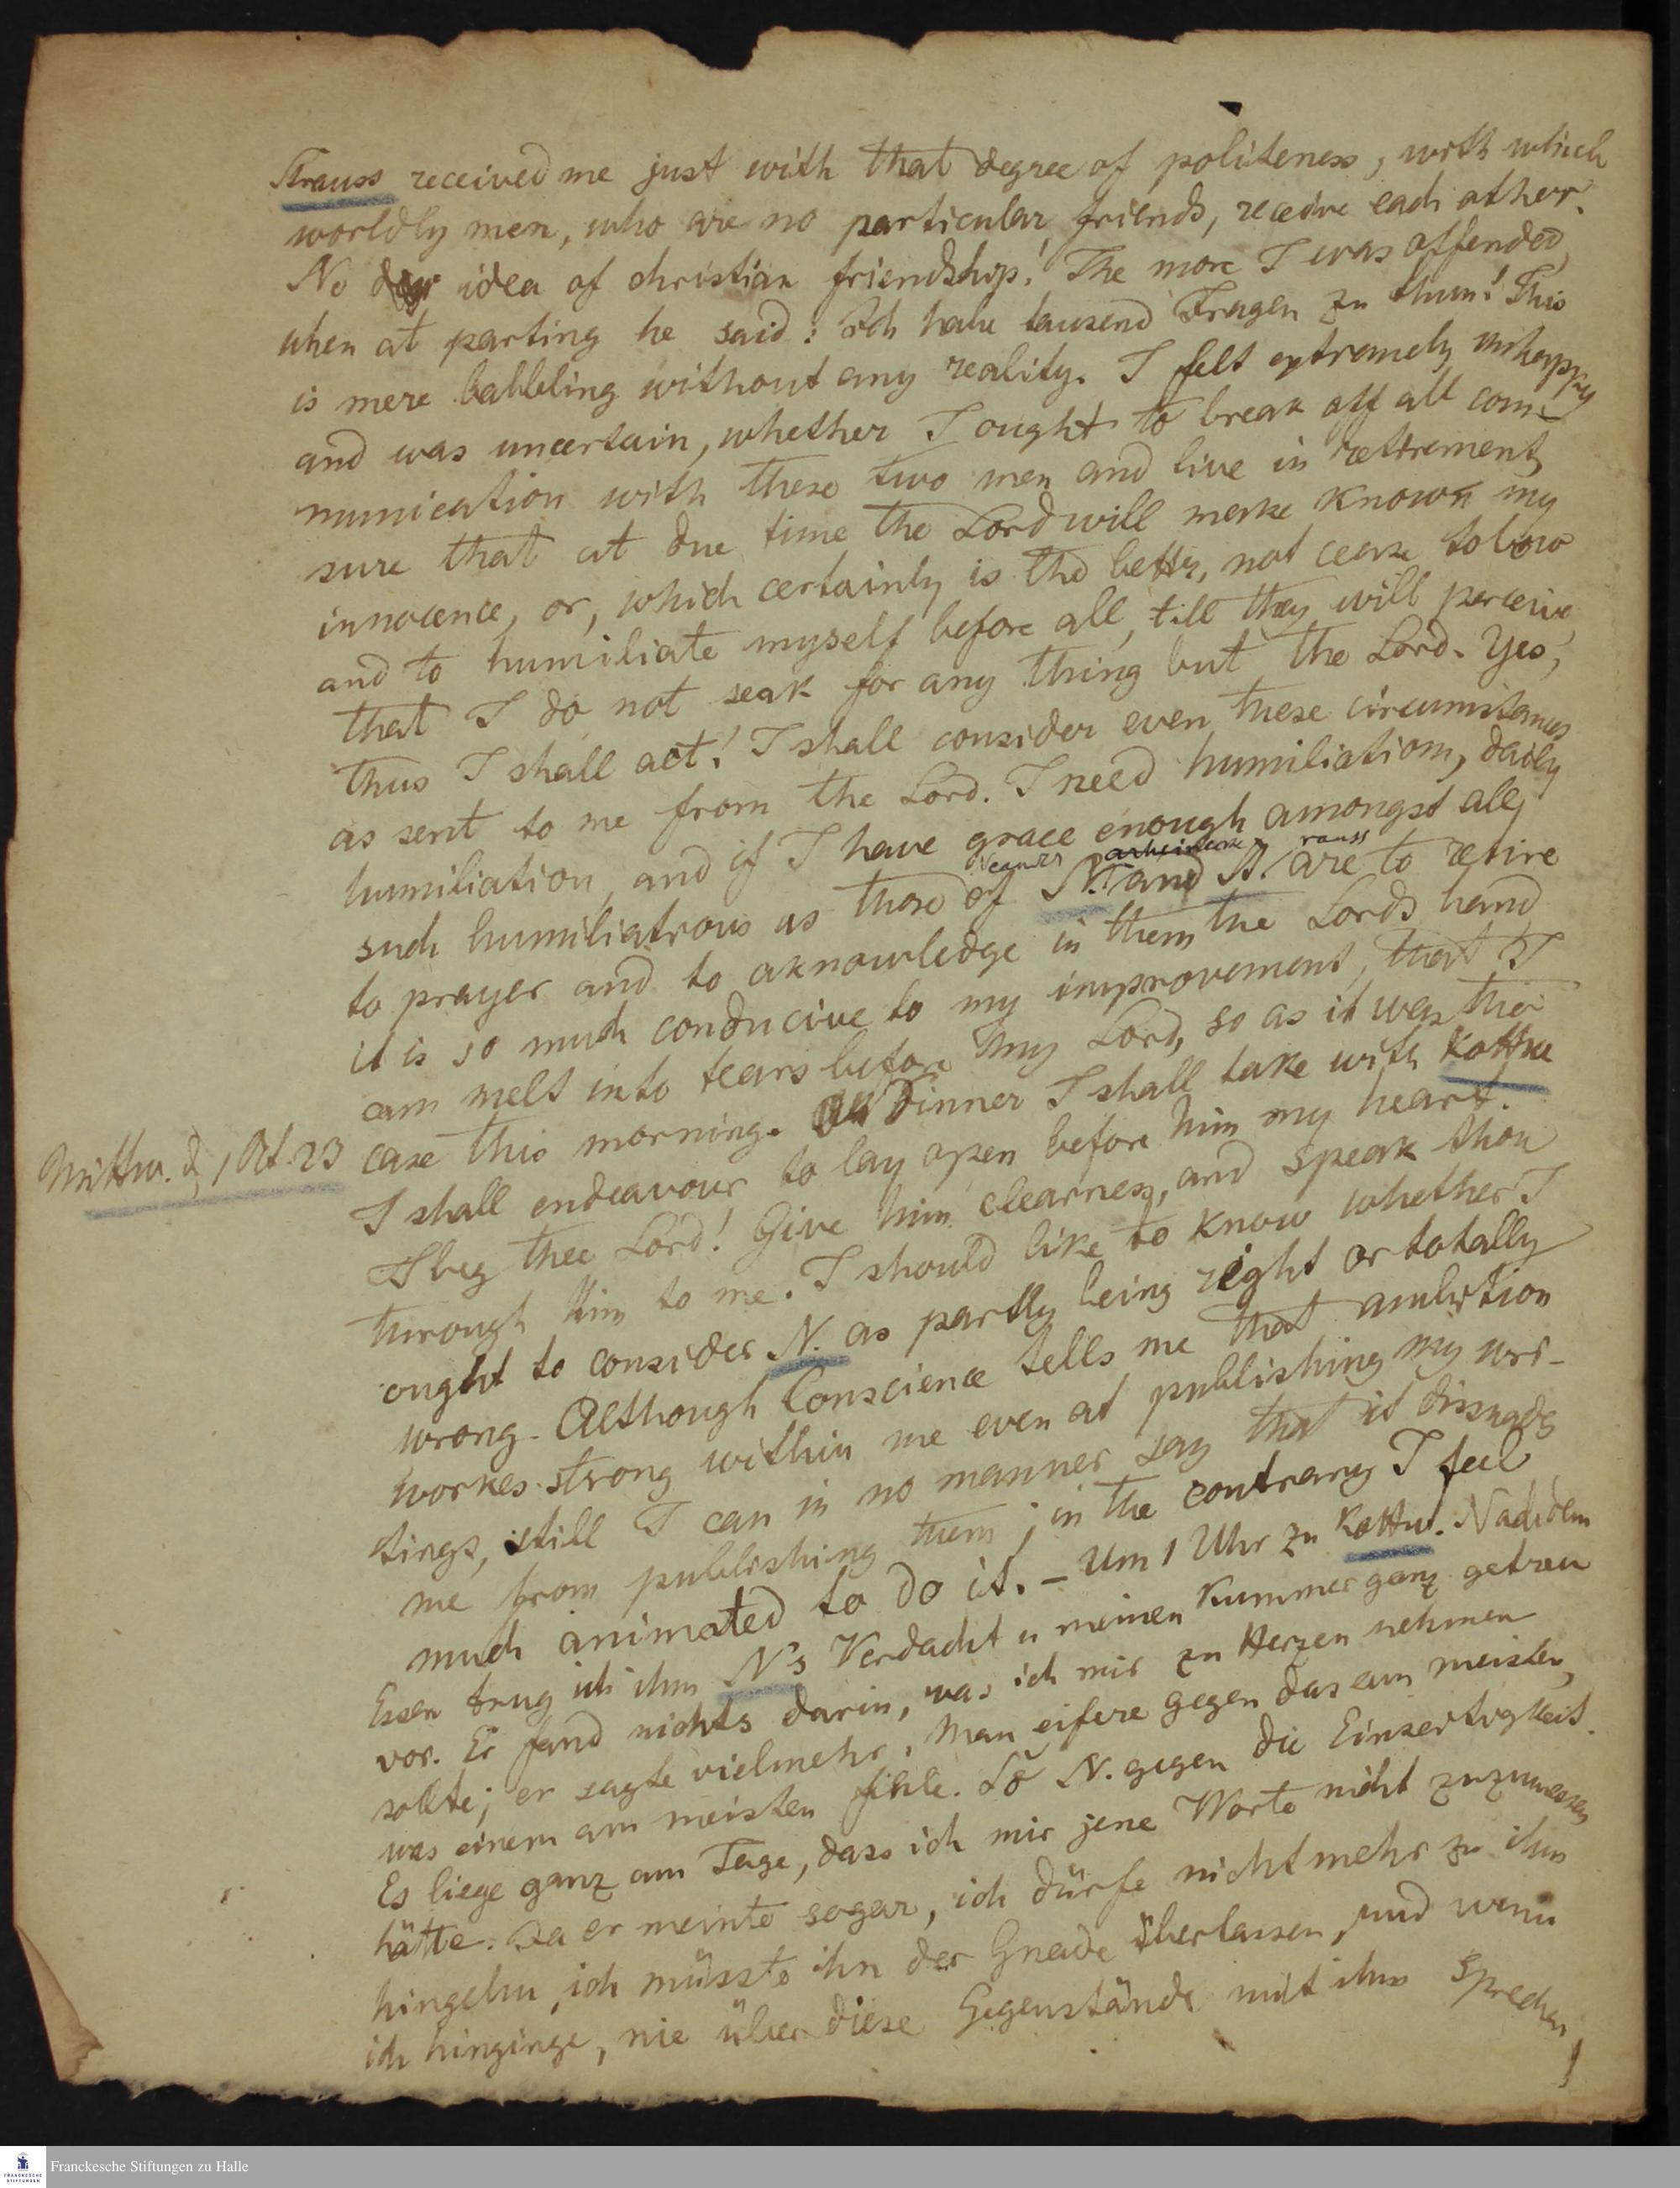 Strauss received me just with that degree of politeness, with which
worldly men, who are no particular friends, receive each other.
No idea of christian friendship! The more I was offended,
when at parting he said: Ich habe tausend Fragen zu thun! This
is mere babbling without any reality. I felt extremely unhappy
and was uncertain, whether I ought to break off all com-
munication with these two men and live in retirement,
sure that at due time the Lord will make known my
innocence, or, which certainly is the better, not cease to bow
and to humiliate myself before all, till they will perceive
that I do not seak for any thing but the Lord. Yes,
thus I shall act! I shall consider even these circumstances
as sent to me from the Lord. I need humiliation, daily
humiliation, and if I have grace enough amongst all
Neander rauss
such humiliations as those of N. and St. are to retire
to prayer and to aknowledge in them the Lords hand
it is so much conducive to my improvement, that I
can melt into tears before my Lord, so as it was the
Mittw. d. 1 Oct. 23 case this morning. Dinner I shall take with Kottw
I shall endeavour to lay open before him my heart.
I beg thee Lord! Give him clearness, and speak thou
through him to me. I should like to know whether I
ought to consider N. as partly being right or totally
wrong. Although Conscience tells me that ambition
workes strong within me even at publishing my wri-
tings, still I can in no manner say that it dissuade
me from publishing them; in the contrary I feel
much animated to do it. – Um 1 Uhr zu Kottw. Nach dem
Essen trug ich ihm N's Verdacht u meinen Kummer ganz getreu
vor. Er fand nichts darin, was ich mir zu Herzen nehmen
sollte; er sagte vielmehr, man eifere gegen das am meisten,
was einem am meisten fehle. So N. gegen die Einseitigkeit.
Es liege ganz am Tage, dass ich mir jene Worte nicht zuzumessen
hätte. Ja er meinte sogar, ich dürfe nicht mehr zu ihm
hingehn, ich müsste ihn der Gnade überlassen, und wenn
ich hinginge, nie über diese Gegenstände mit ihm sprechen,
Franckesche Stiftungen zu Halle
FRANCKESCHE
STIFTUNGEN